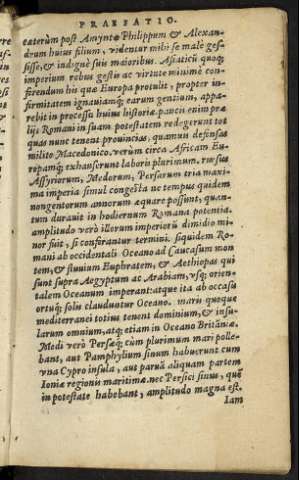 PRAEFATIO.
cæterùm post Amyntæ Philippum & Alexan-
drum huius filium, videntur mihi se male ges-
sisse, & indignè suis maioribus. Asiaticũ quoq;
imperium rebus gestis ac virtute minimè con-
ferendum his quæ Europa protulit, propter in-
firmitatem ignauiamq́; earum gentium, appa-
rebit in processu huius historiæ. paucis enim præ
lijs Romani in suam potestatem redegerunt tot
quas nunc tenent prouincias, quamuis defensas
milite Macedonico. verùm circa Africam Eu-
ropamq́; exhauserunt laboris plurimum. rursus
Assyriorum, Medorum, Persarum tria maxi-
ma imperia simul congesta nec tempus quidem
nongentorum annorum æquare possunt, quan-
tum durauit in hodiernum Romana potentia.
amplitudo verò illorum imperiorũ dimidio mi-
nor fuit, si conferantur termini. siquidem Ro-
mani ab occidentali Oceano ad Caucasum mon
tem, & fluuium Euphratem, & Aethiopas qui
sunt supra Aegyptum ac Arabiam, vsq; orien-
talem Oceanum imperant: atque ita ab occasu
ortuq́; solis clauduntur Oceano. maris quoque
mediterranei totius tenent dominium, & insu-
larum omnium, atq; etiam in Oceano Britãniæ.
Medi verò Persæq́; cùm plurimum mari polle-
bant, aut Pamphylium sinum habuerunt cum
vna Cypro insula, aut paruã aliquam partem
Ioniæ regionis maritimæ. nec Persici sinus, quẽ
in potestate habebant, amplitudo magna est.
Iam